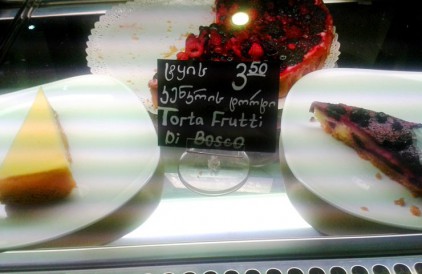 ტყის 3.50
კენკრის ტორტი
Torta Frutti
Di Bosco